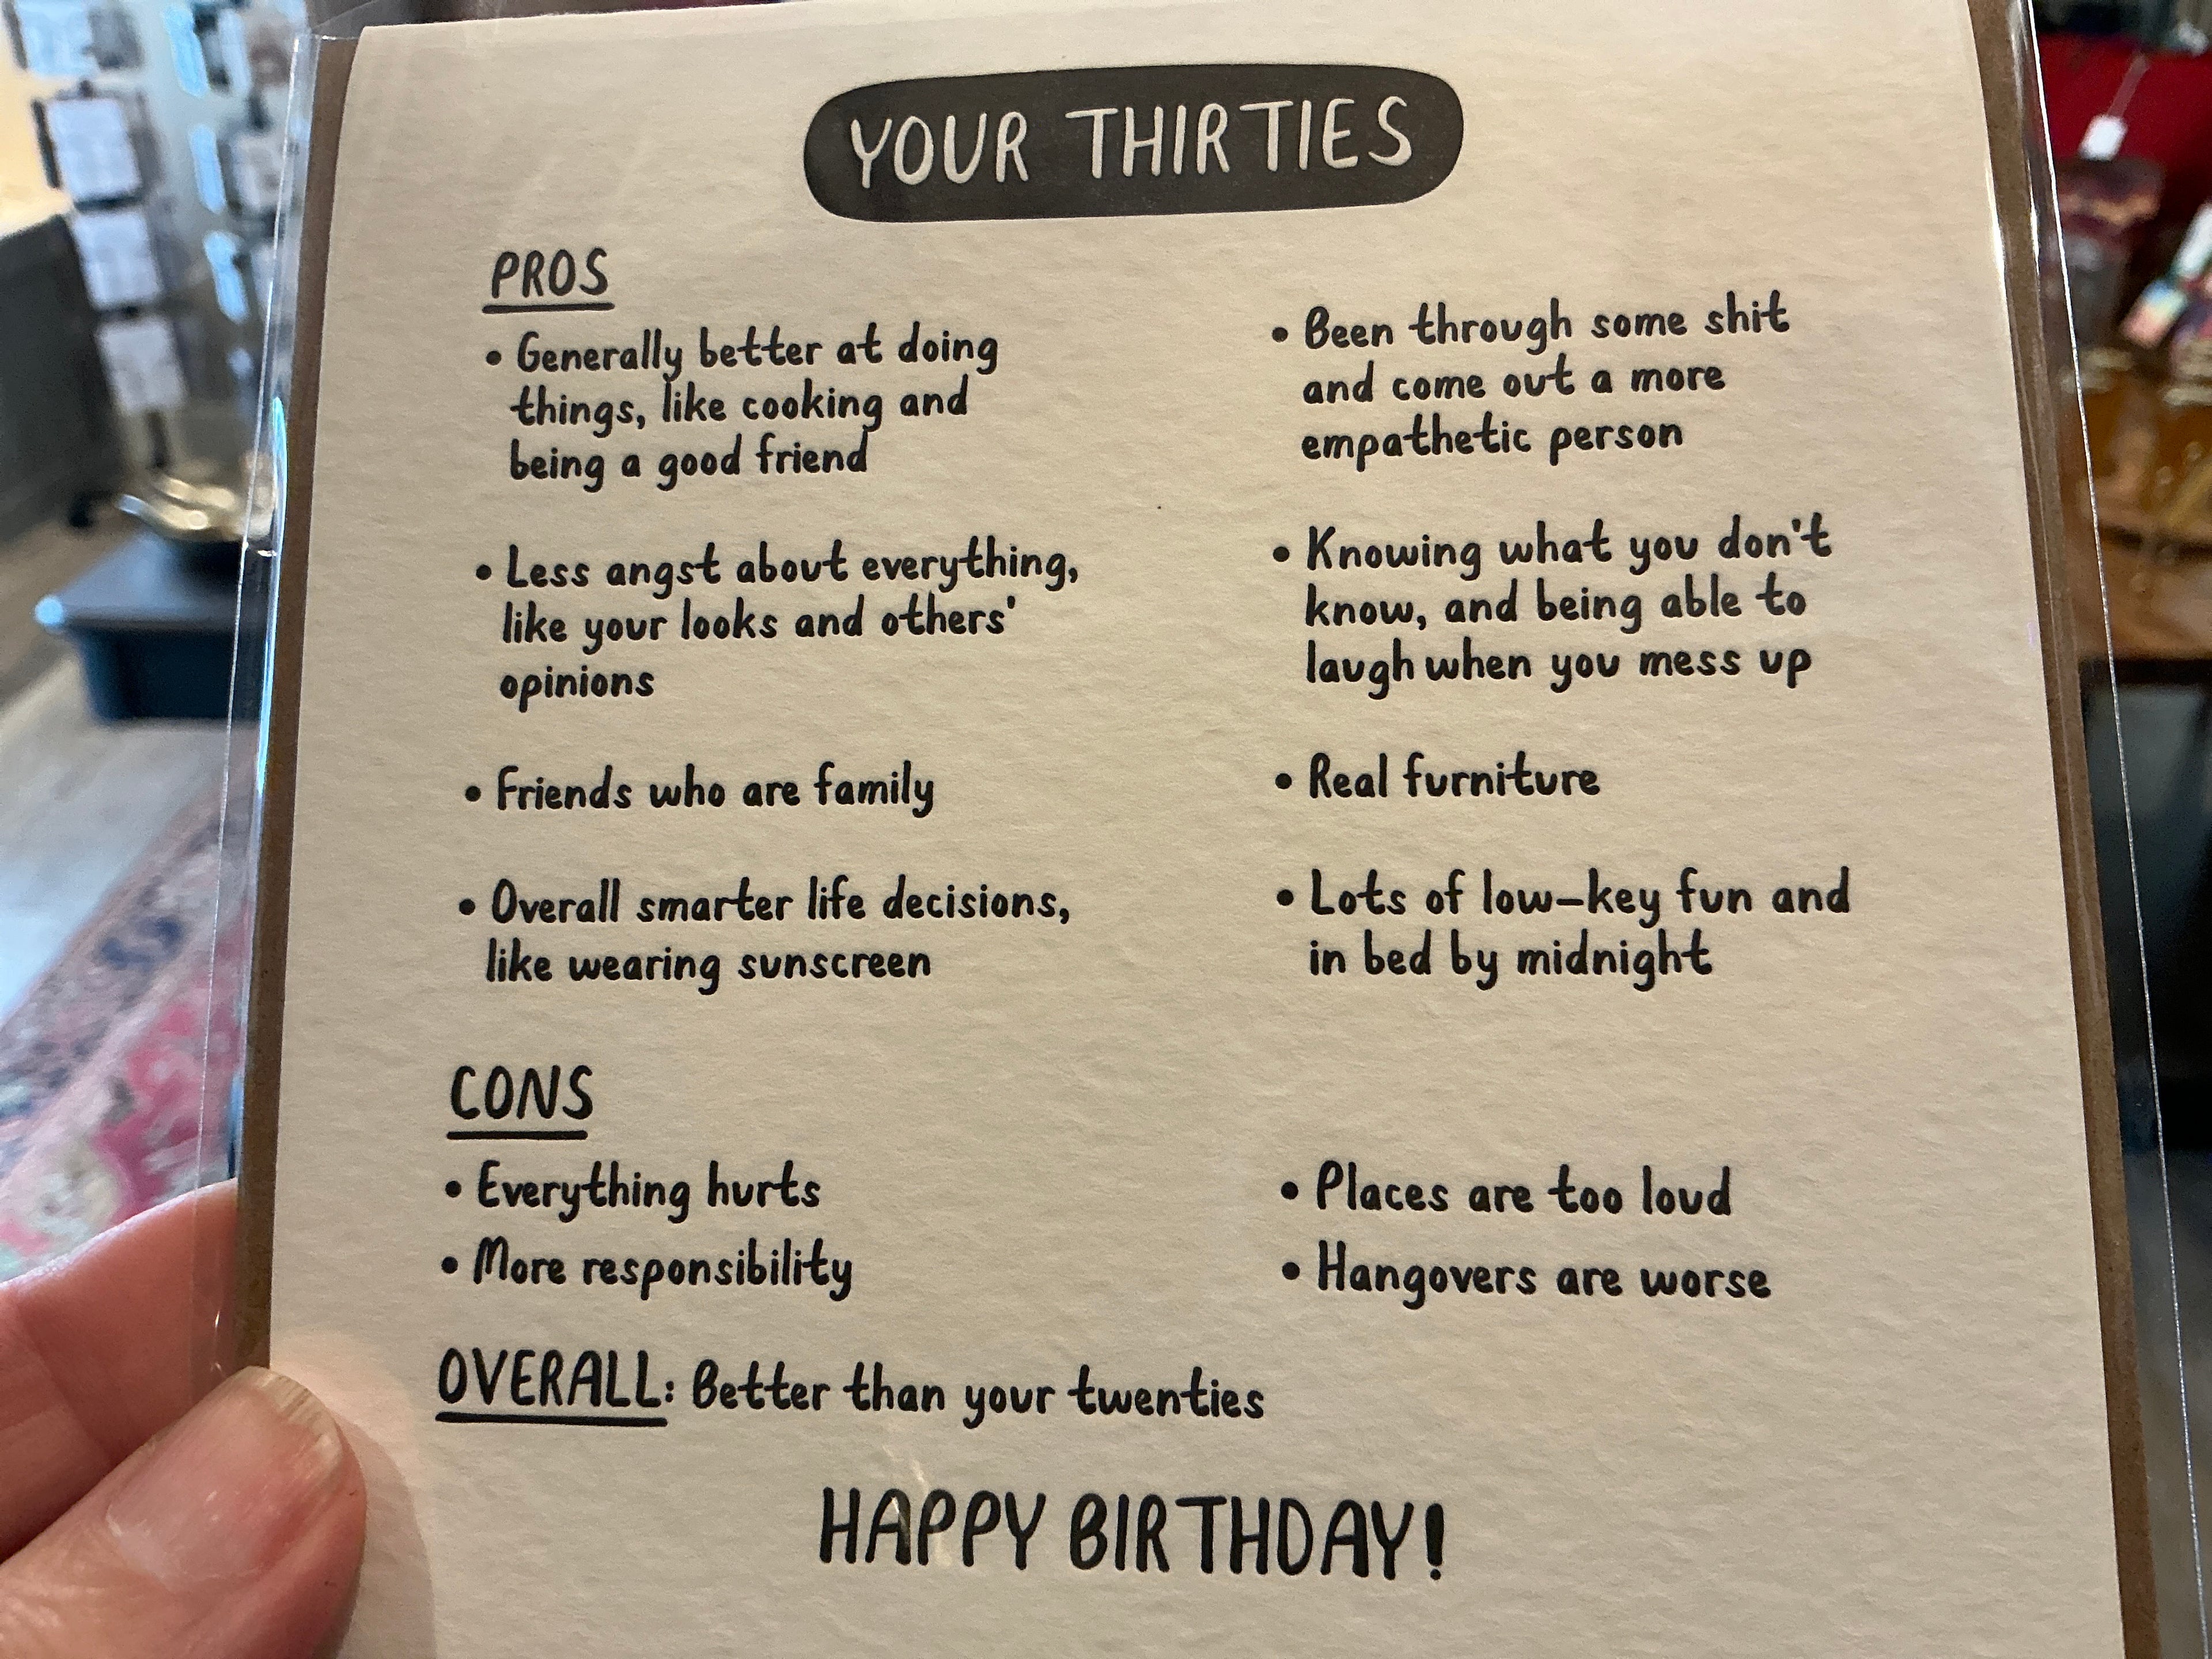 YOUR THIRTIES
PROS
• Generally better at doing
things, like cooking and
being a good friend
• Less angst about everything,
like your looks and others'
opinions
• Friends who are family
• Overall smarter life decisions,
like wearing sunscreen
• Been through some shit
and come out a more
empathetic person
• Knowing what you don't
know, and being able to
laugh when you mess up
• Real furniture
• Lots of low-key fun and
in bed by midnight
CONS
• Everything hurts
• More responsibility
• Places are too loud
• Hangovers are worse
OVERALL: Better than your twenties
HAPPY BIRTHDAY!